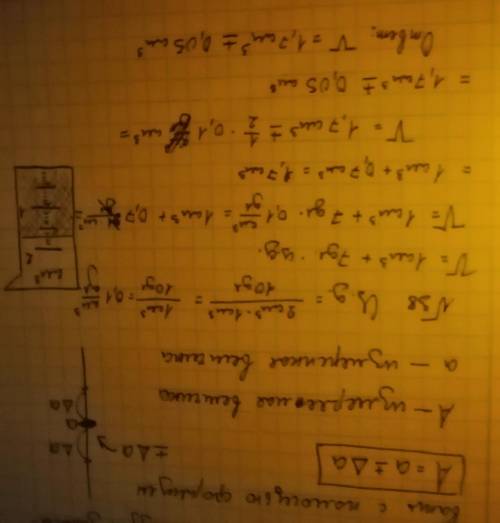 с помощью формулы
A = a ± Δa
± Δa
Δa
a
Δa
A – измеряемая величина
a – измеренная величина
№38 Ц.д. = 2см³-1см³/10дел = 1см³/10дел = 0,1 см³/дел
V = 1см³ + 7дел · ц.д.
V = 1см³ + 7дел · 0,1 см³/дел = 1см³ + 0,7 см³ =
= 1см³ + 0,7см³ = 1,7см³
V = 1,7см³ ± 1/2 · 0,1 см³ =
= 1,7см³ ± 0,05 см³
Ответ: V = 1,7см³ ± 0,05 см³
см³
2
1